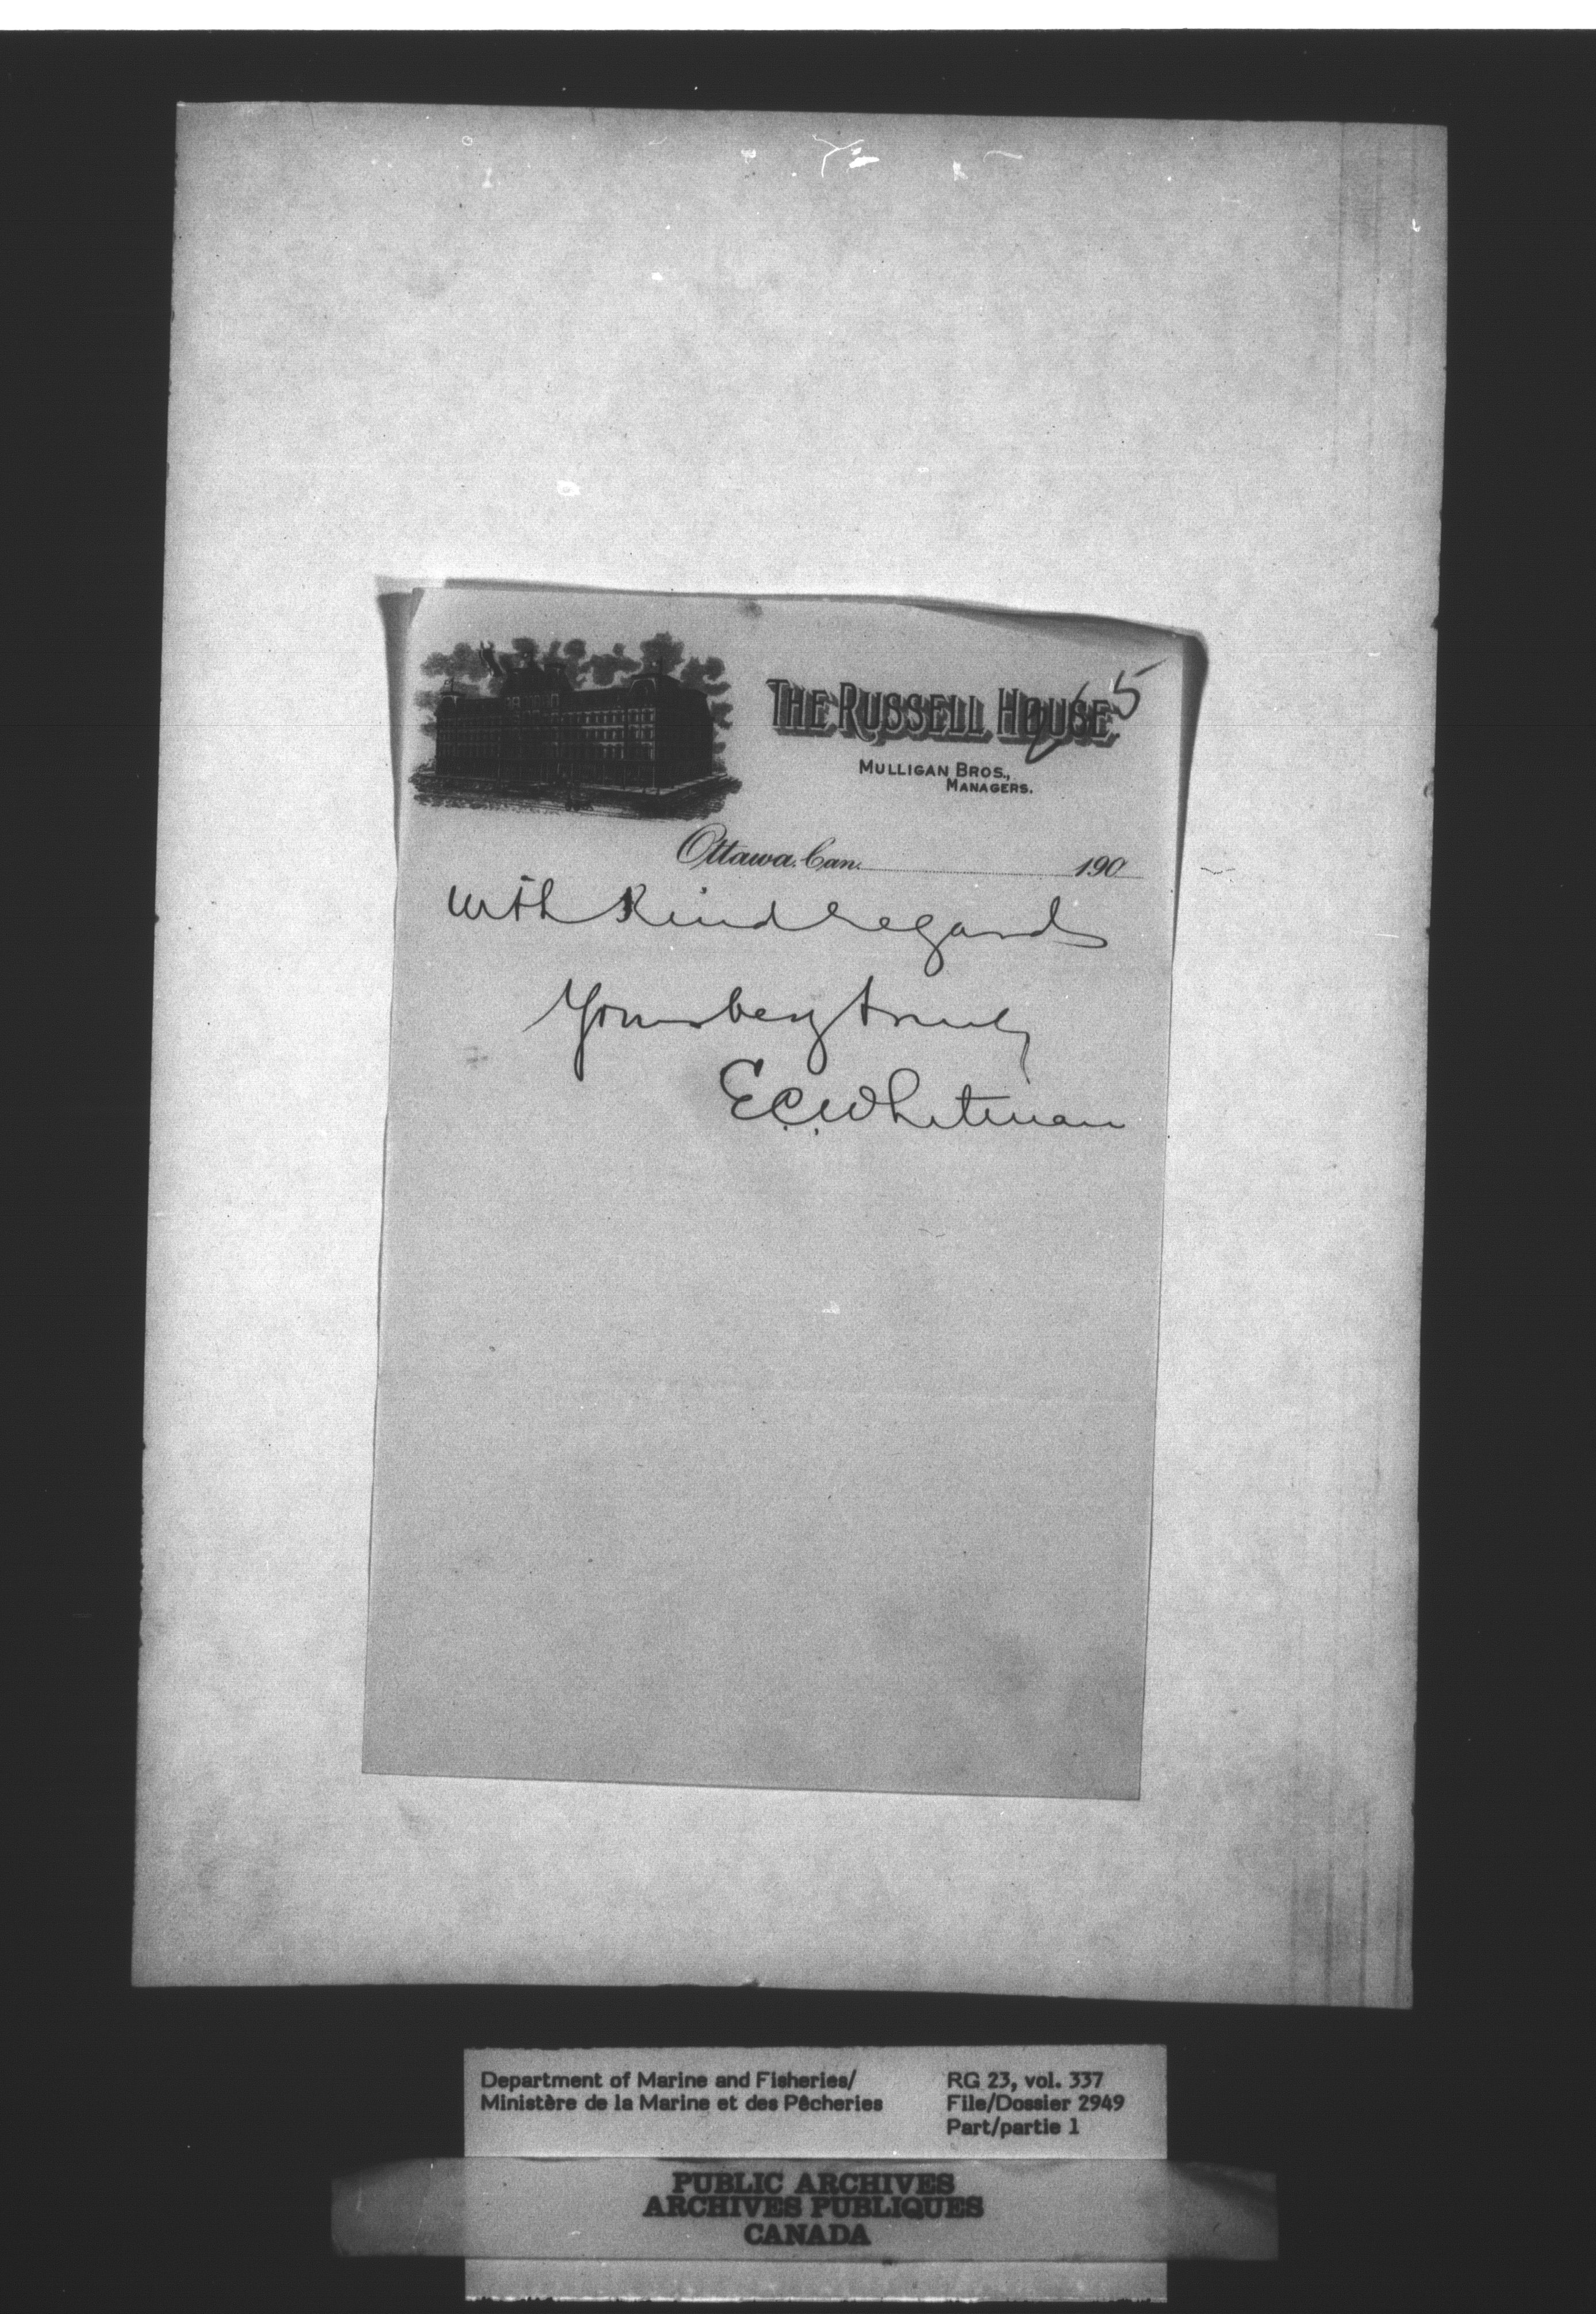 THE RUSSELL HOUSE.
MULLIGAN BROS.,
MANAGERS.
Ottawa. Can. 190
with Kind regards
Yours very truly
E.C. Whitman
Department of Marine and Fisheries/
Ministère de la Marine et des Pêcheries
RG 23, vol. 337
File/Dossier 2949
Part/partie 1
PUBLIC ARCHIVES
ARCHIVES PUBLIQUES
CANADA